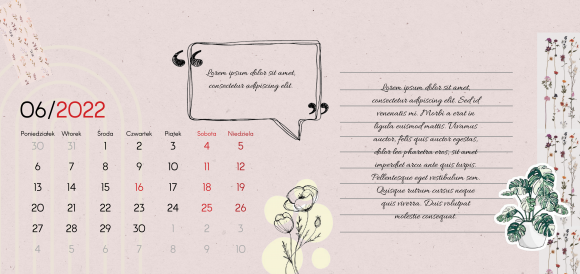 Lorem ipsum dolor sit amet,
consectetur adipiscing elit.
06/2022
Poniedziałek Wtorek Środa Czwartek Piątek Sobota Niedziela
30 31 1 2 3 4 5
6 7 8 9 10 11 12
13 14 15 16 17 18 19
20 21 22 23 24 25 26
27 28 29 30 1 2 3
4 5 6 7 8 9 10
Lorem ipsum dolor sit amet,
consectetur adipiscing elit. Sed id
venenatis mi. Morbi a erat in
ligula euismod mattis. Vivamus
auctor, felis quis auctor egestas,
dolor leo pharetra eros, sit amet
imperdiet arcu ante quis turpis.
Pellentesque eget vestibulum sem.
Quisque rutrum cursus neque
quis viverra. Duis volutpat
molestie consequat.